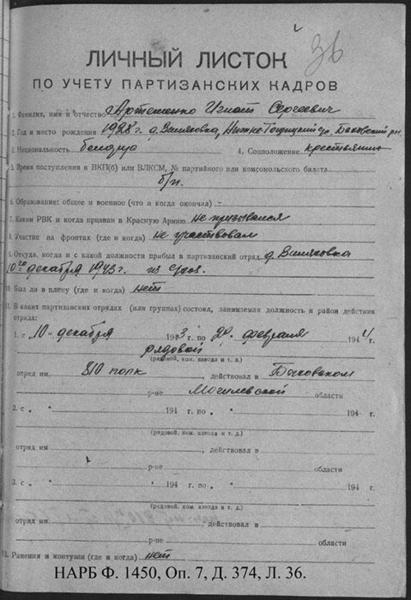 36
ЛИЧНЫЙ ЛИСТОК
ПО УЧЕТУ ПАРТИЗАНСКИХ КАДРОВ
1. Фамилия, имя и отчество Артеменко Игнат Сергеевич
2. Год и место рождения 1928 г. д.
3. Национальность белорус 4. Соцположение крестьянин
5. Время поступления в ВКП(б) или ВЛКСМ, № партийного или комсомольского билета
б/п.
6. Образование: общее и военное (что и когда окончил)
7. Каким РВК и когда призван в Красную Армию не призывался
8. Участие на фронтах (где и когда) не участвовал
9. Откуда, когда и с какой должности прибыл в партизанский отряд д.
10го декабря 1943 г. из
10. Был ли в плену (где и когда) нет
11. В каких партизанских отрядах (или группах) состоял, занимаемая должность и район действия
отряда:
1. с „ 10 „ декабря 1943 г. по „ 20 „ февраля 1944 г.
рядовой
(рядовой, ком. взвода и т. д.)
отряд им. 810 полк действовал в Быховском
р-не Могилевской области
2. с „ „ 194 г. по „ „ 194 г.
(рядовой, ком. взвода и т. д.)
отряд им , действовал в
р-не области
3. с „ „ 194 г. по „ „ 194 г.
(рядовой, ком. взвода и т. д.)
отряд им. , действовал в
р-не области
12. Ранения и контузии (где и когда) нет
НАРБ Ф. 1450, Оп. 7, Д. 374, Л. 36.